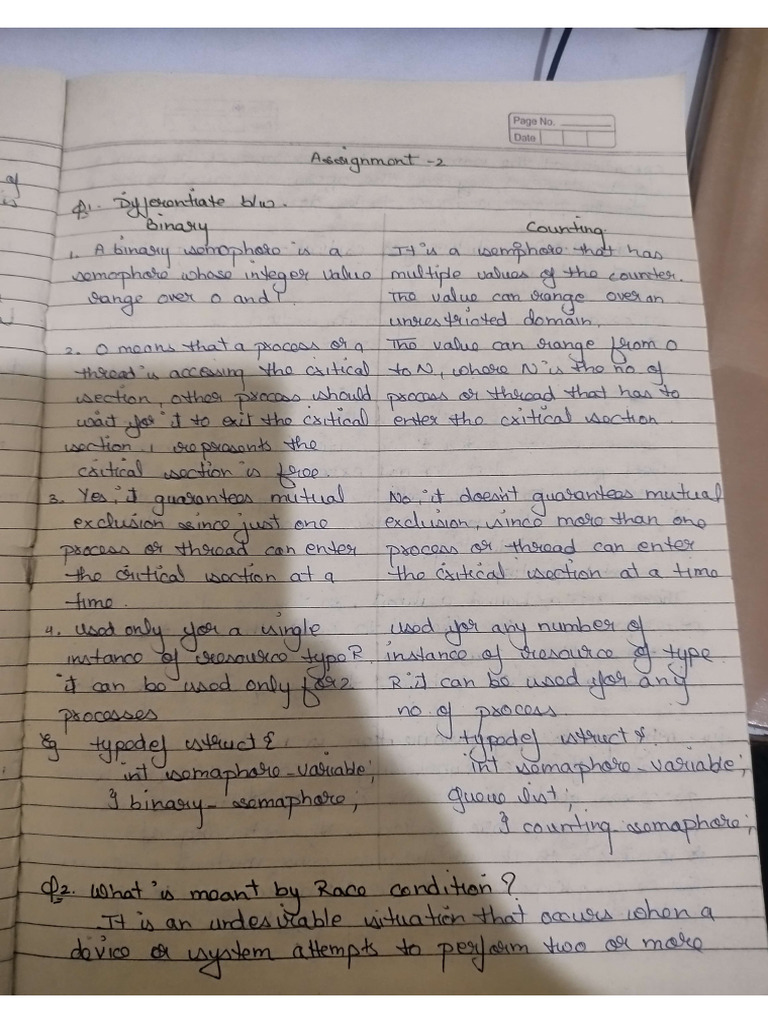 of
is
Page No.
Date
Assignment -2
Q1. Differentiate b/w.
Binary
1. A binary semaphore is a
semaphore whose integer value
range over 0 and 1.
2. 0 means that a process or a
thread is accessing the critical
section, other process should
wait for it to exit the critical
section. 1 represents the
critical section is free.
3. Yes, it guarantees mutual
exclusion since just one
process or thread can enter
the critical section at a
time.
4. used only for a single
instance of resource type R.
it can be used only for 2
processes
eg typedef struct {
int semaphore_variable;
} binary_semaphore;
Counting
It is a semaphore that has
multiple values of the counter.
The value can range over an
unrestricted domain.
The value can range from 0
to N, where N is the no of
process or thread that has to
enter the critical section.
No, it doesn't guarantees mutual
exclusion, since more than one
process or thread can enter
the critical section at a time
used for any number of
instance of resource of type
R. it can be used for any
no. of process.
typedef struct {
int semaphore_variable;
queue list;
} counting semaphore;
Q2. What is meant by Race condition?
It is an undesirable situation that occurs when a
device or system attempts to perform two or more